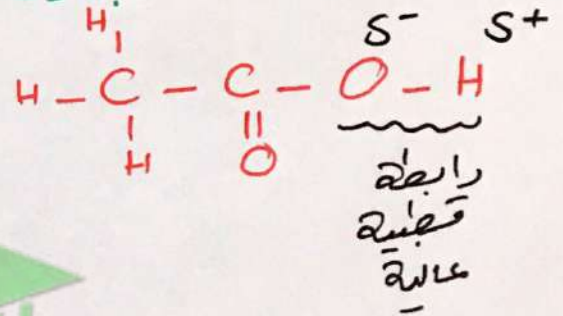 S- S+
H
H - C - C - O - H
H O
رابطة
قطبية
عالية